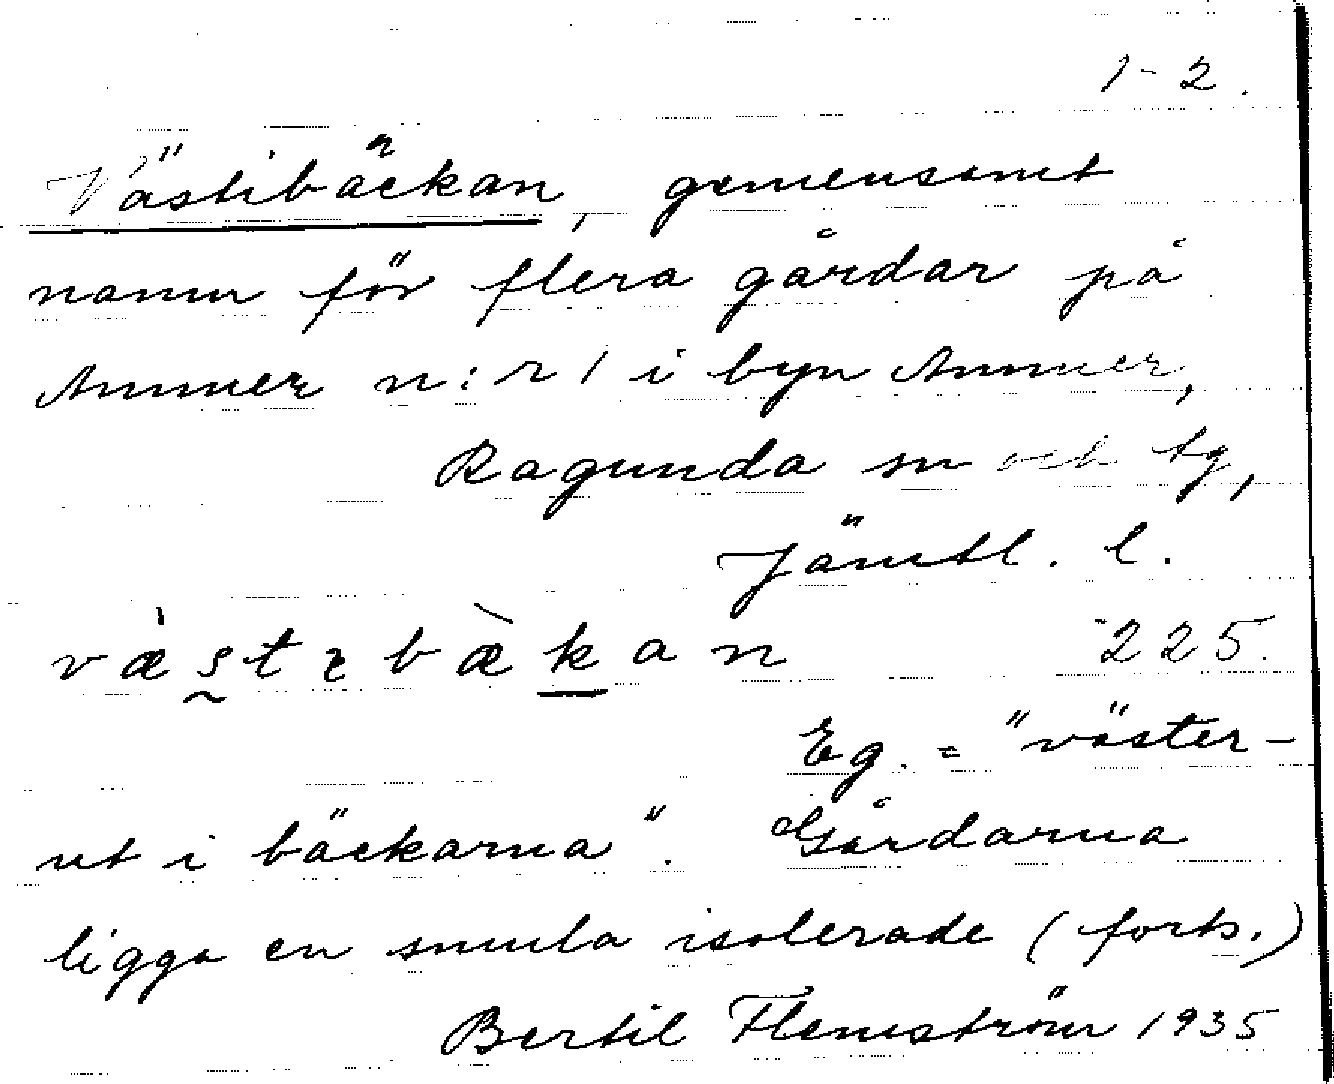 1-2.
Västibäckan, gemensamt
namn för flera gårdar på
Ammer n:r 1 i byn Ammer,
Ragunda sn och tg,
Jämtl. l.
225.
Eg. = "väster-
ut i bäckarna". Gårdarna
ligga en smula isolerade (forts.)
Bertil Flemström 1935